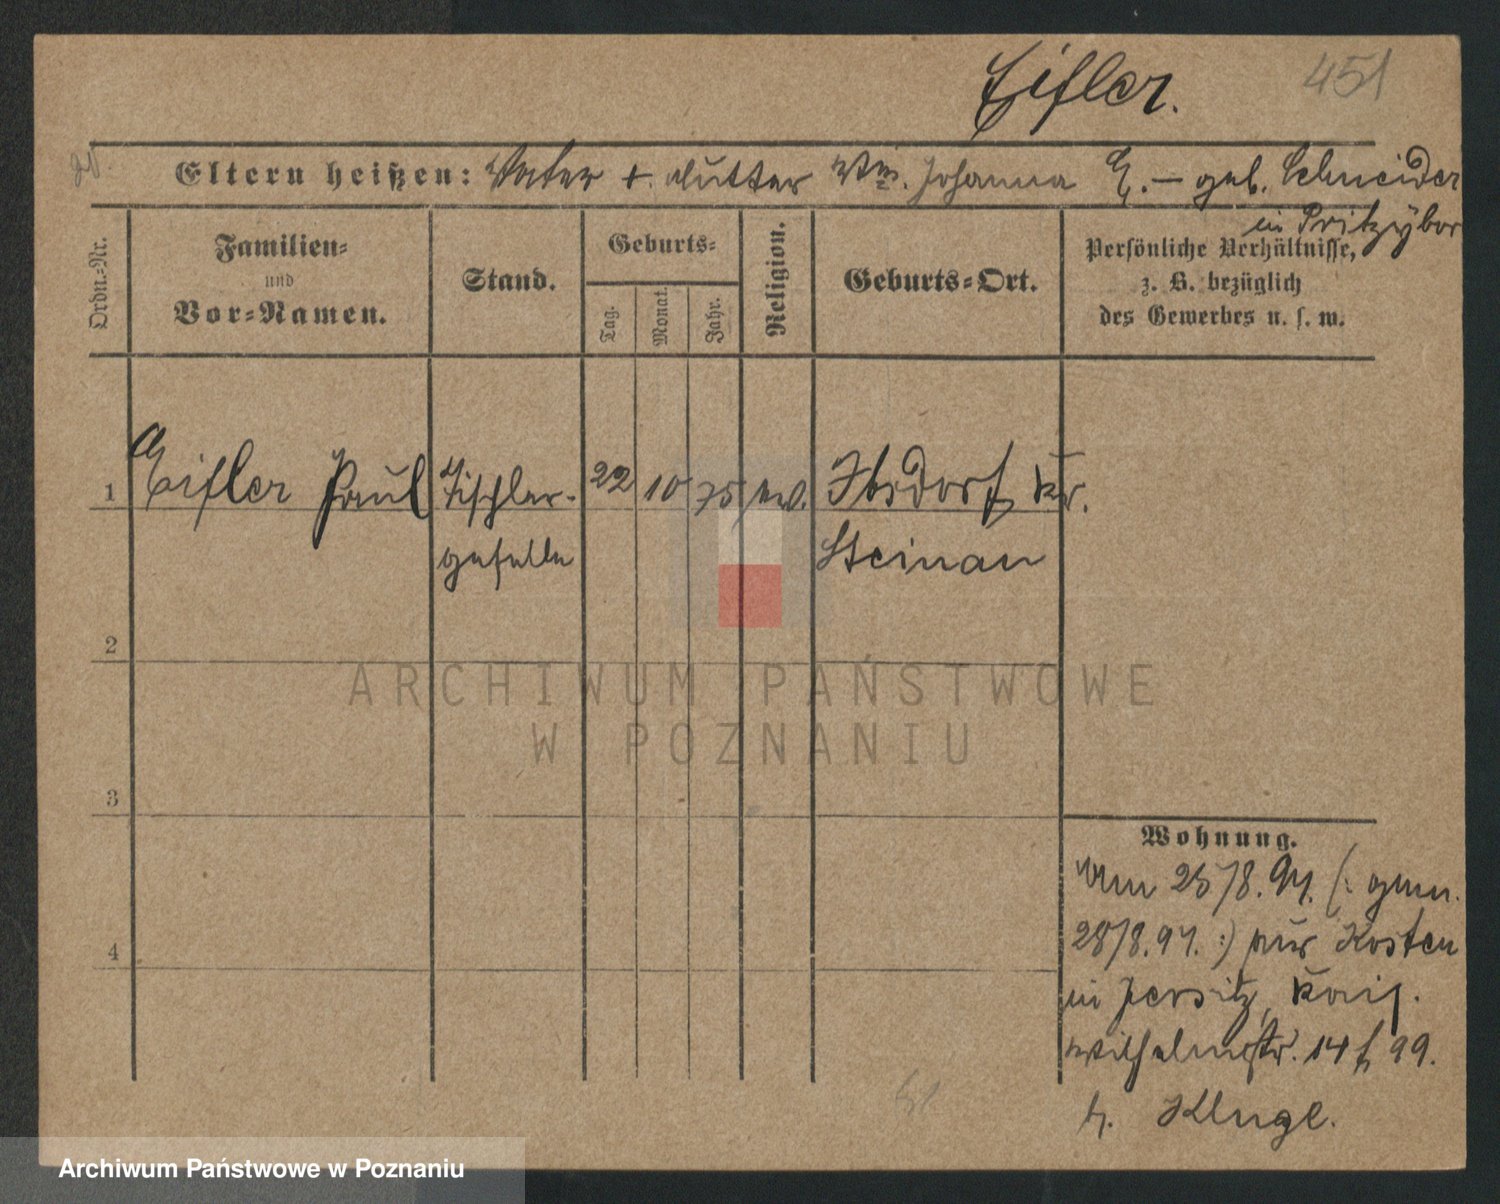 Eifler. 451
Eltern heißen: Vater +. Mutter Ww. Johanna E. – geb. Schneider
in Pritzybor
Ordn.-Nr.
Familien-
und
Vor-Namen.
Stand.
Geburts-
Tag.
Monat.
Jahr.
Religion.
Geburts-Ort.
Persönliche Verhältnisse,
z. B. bezüglich
des Gewerbes u. s. w.
1 Eifler Paul Tischler- 22 10 75 ev. Ibsdorf, Kr.
geselle Steinau
2
3
4
Wohnung.
Am 25/8. 94. (: gem.
28/8. 94. :) aus Kosten
in Jersitz, Kais.
Wilhelmstr. 14 f 99.
b. Klugl.
ARCHIWUM PAŃSTWOWE
W POZNANIU
Archiwum Państwowe w Poznaniu